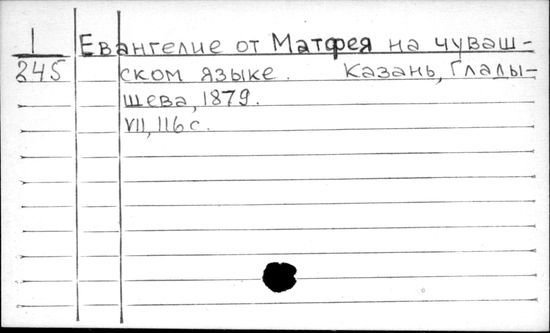 1 Евангелие от Матфея на чуваш-
245 ском языке. Казань, Глады-
шева, 1879.
VII, 116 с.